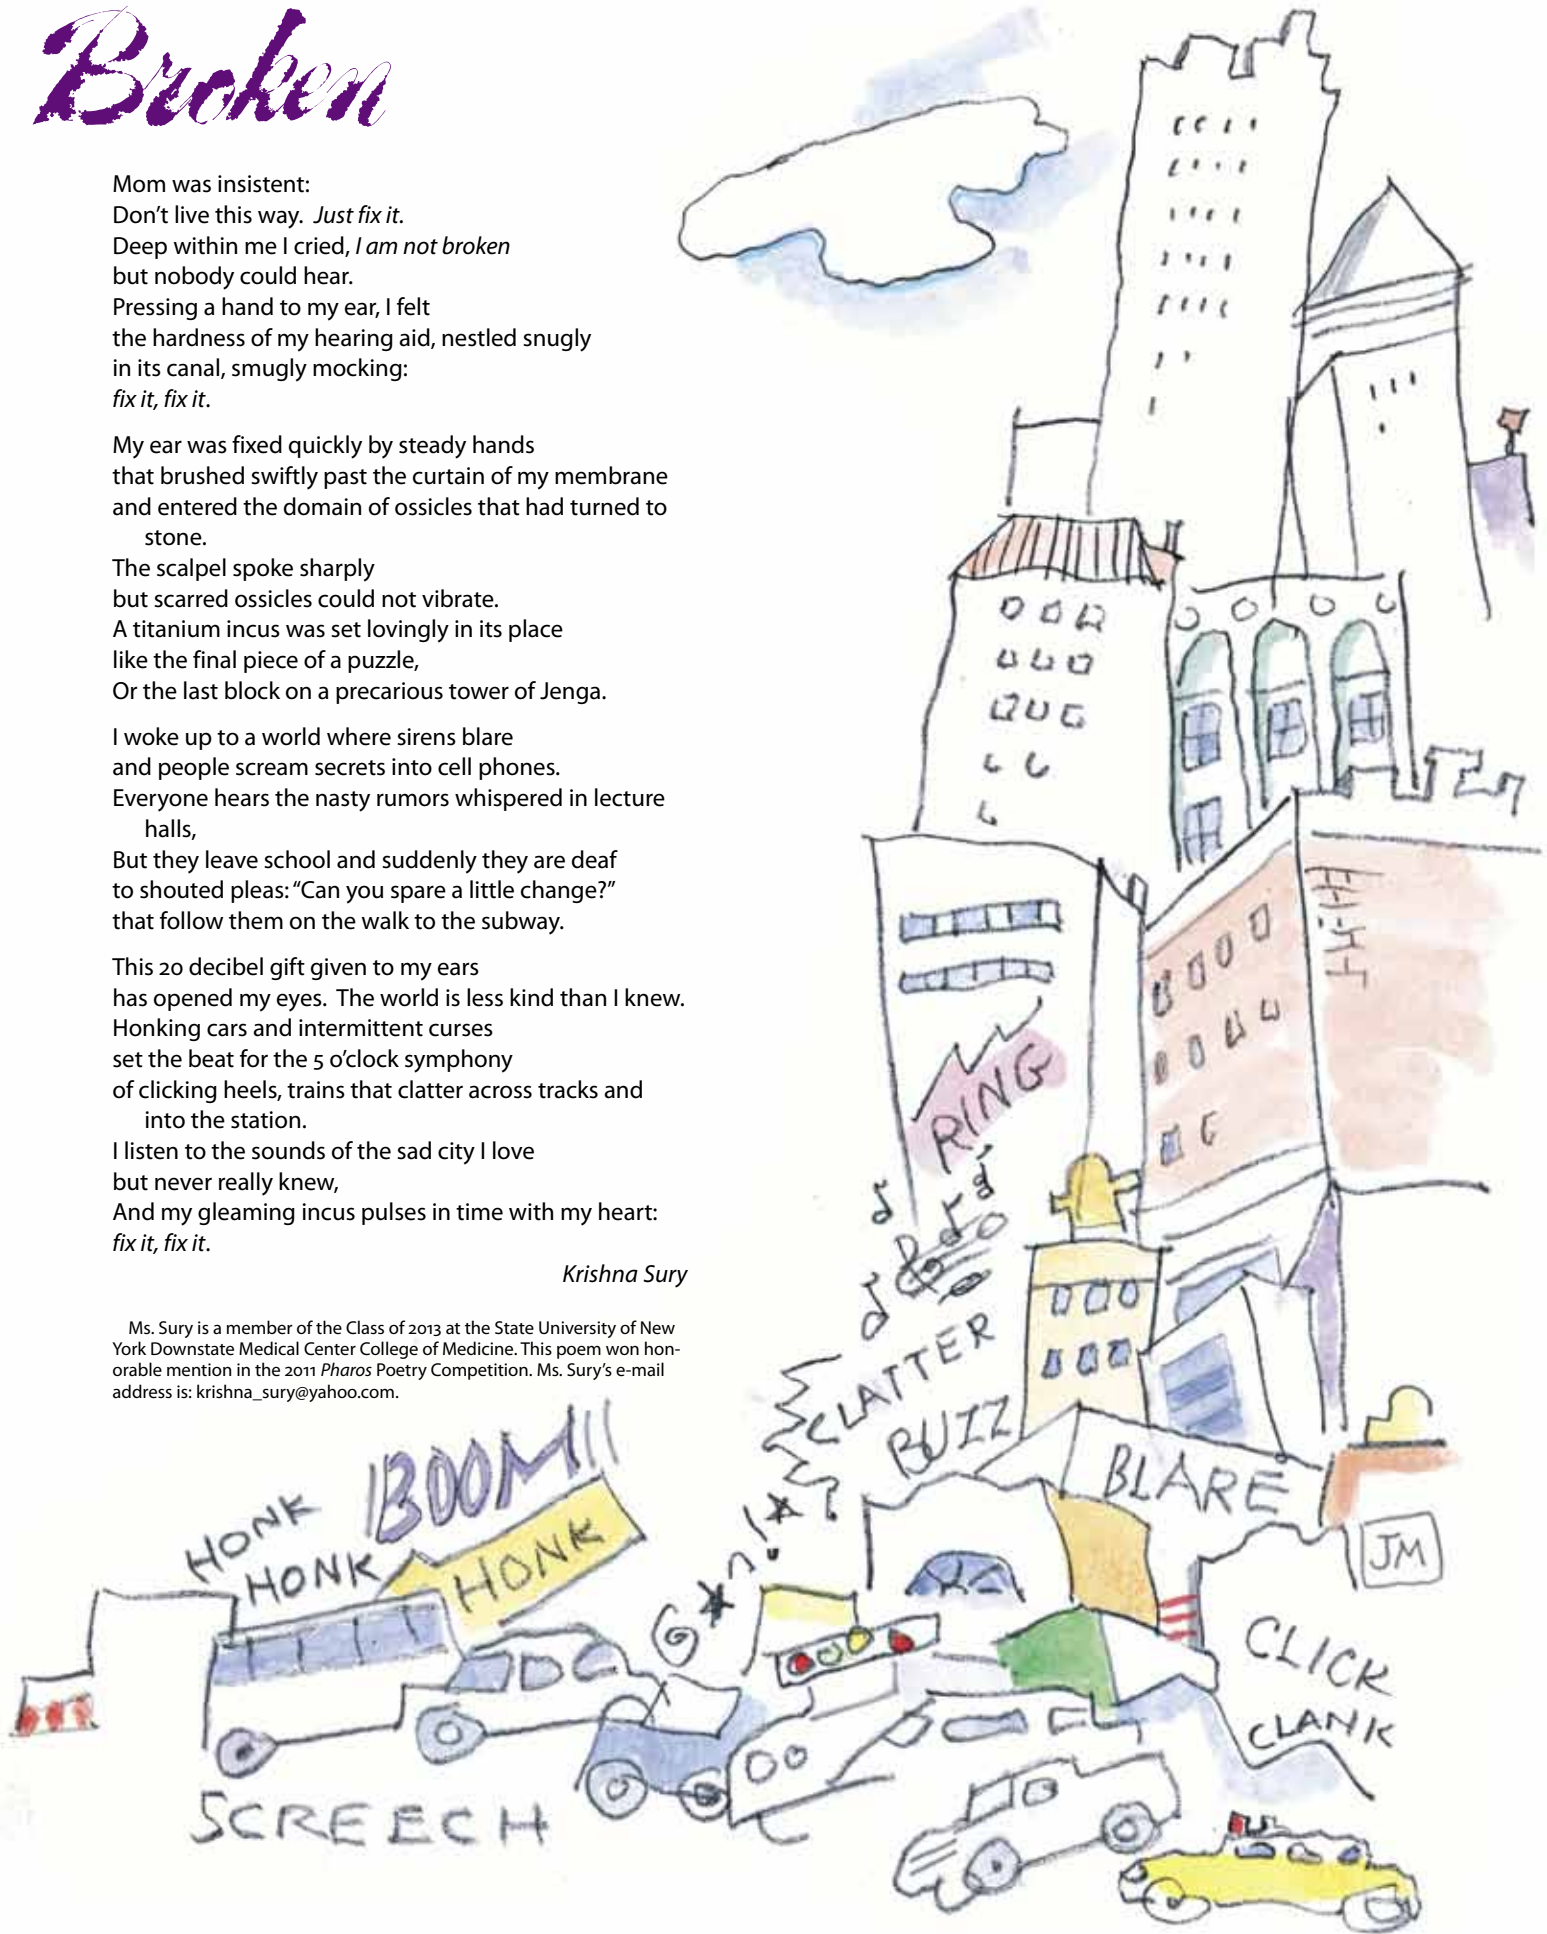 Broken
Mom was insistent:
Don’t live this way. Just fix it.
Deep within me I cried, I am not broken
but nobody could hear.
Pressing a hand to my ear, I felt
the hardness of my hearing aid, nestled snugly
in its canal, smugly mocking:
fix it, fix it.
My ear was fixed quickly by steady hands
that brushed swiftly past the curtain of my membrane
and entered the domain of ossicles that had turned to
stone.
The scalpel spoke sharply
but scarred ossicles could not vibrate.
A titanium incus was set lovingly in its place
like the final piece of a puzzle,
Or the last block on a precarious tower of Jenga.
I woke up to a world where sirens blare
and people scream secrets into cell phones.
Everyone hears the nasty rumors whispered in lecture
halls,
But they leave school and suddenly they are deaf
to shouted pleas: “Can you spare a little change?”
that follow them on the walk to the subway.
This 20 decibel gift given to my ears
has opened my eyes. The world is less kind than I knew.
Honking cars and intermittent curses
set the beat for the 5 o’clock symphony
of clicking heels, trains that clatter across tracks and
into the station.
I listen to the sounds of the sad city I love
but never really knew,
And my gleaming incus pulses in time with my heart:
fix it, fix it.
Krishna Sury
Ms. Sury is a member of the Class of 2013 at the State University of New
York Downstate Medical Center College of Medicine. This poem won hon-
orable mention in the 2011 Pharos Poetry Competition. Ms. Sury’s e-mail
address is: krishna_sury@yahoo.com.
RING
CLATTER
BUZZ
BLARE
BOOM!!
HONK
HONK
HONK
JM
CLICK
CLANK
SCREECH